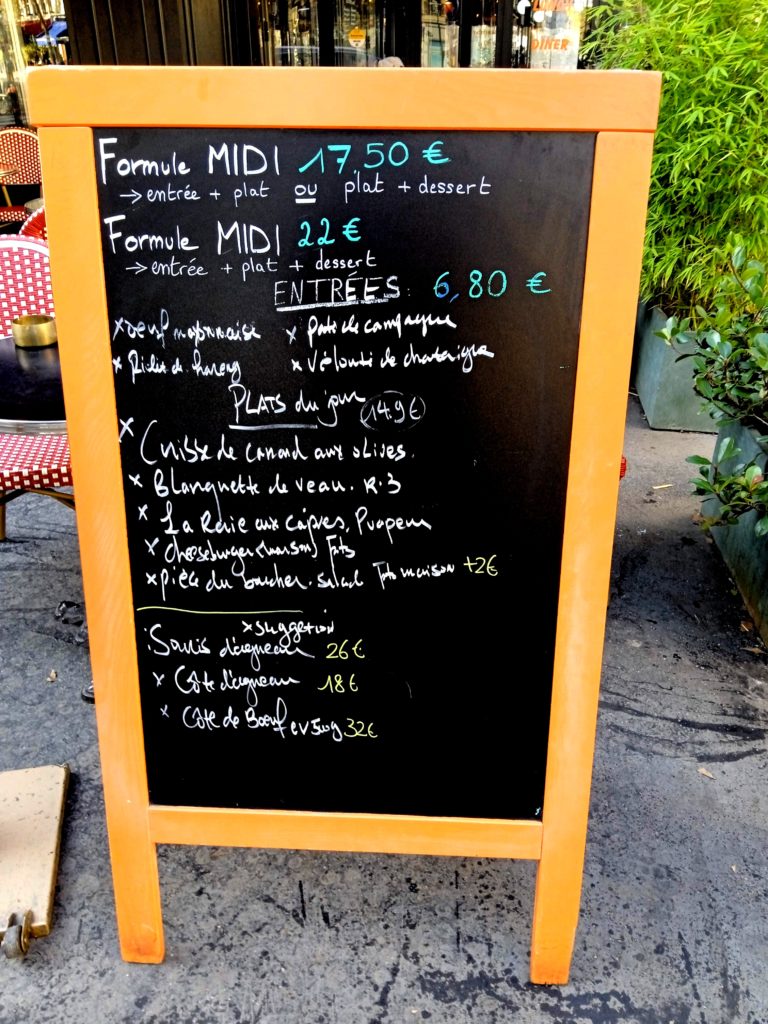 DINER
Formule MIDI 17.50 €
→ entrée + plat ou plat + dessert
Formule MIDI 22 €
→ entrée + plat + dessert
ENTRÉES : 6,80 €
x oeuf mayonnaise x Pate de campagne
x de hareng x Velouté de chataigne
PLATS du jour 14.9 €
x Cuisse de canard aux olives.
x Blanquette de veau. R.3
x La Raie aux câpres,
x Cheeseburger (maison) Fits
x pièce du boucher. salad Fts maison +2€
x suggetion
Souris d'agneau 26€
x Côte d'agneau 18€
x Côte de Boeuf 32€